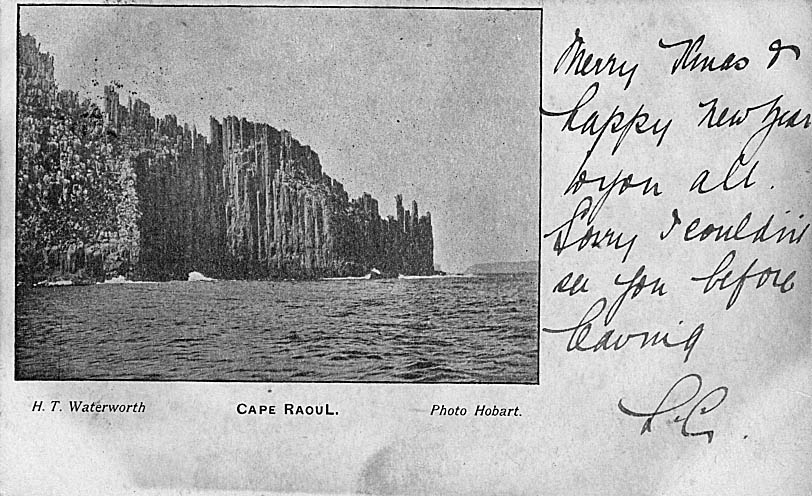 Merry Xmas &
happy new year
to you all.
Sorry I couldn't
see you before
leaving
L.C.
H. T. Waterworth
CAPE RAOUL.
Photo Hobart.